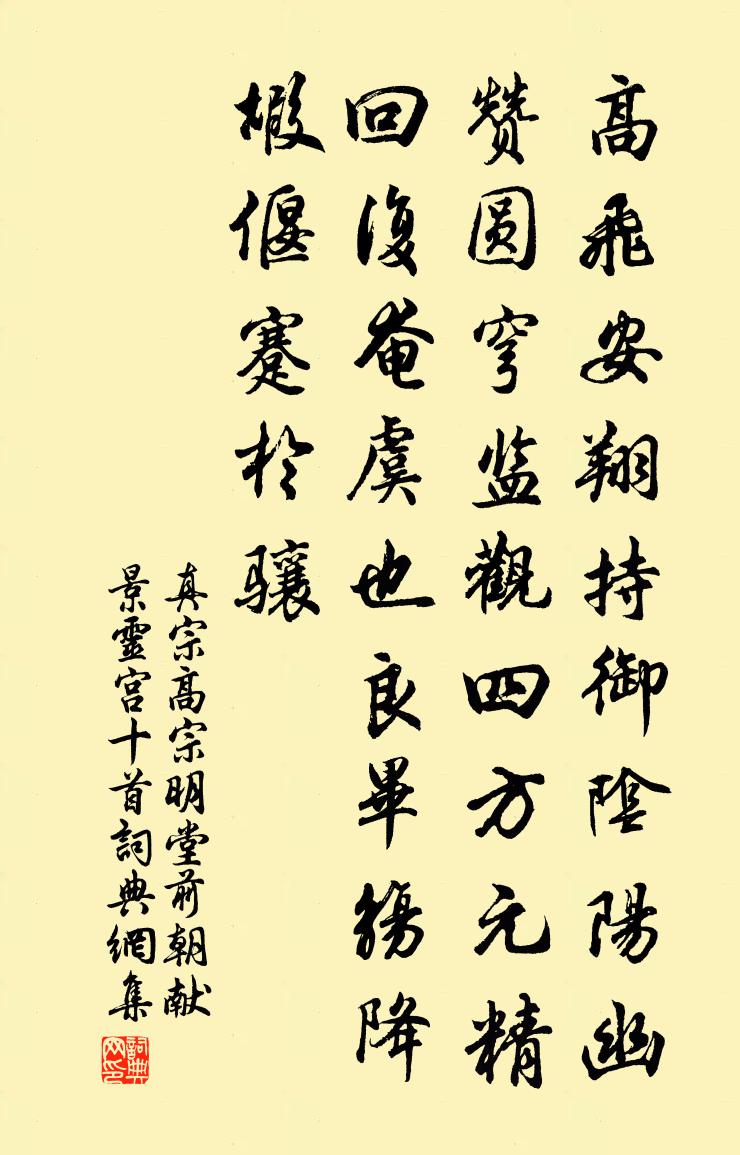 高飛安翔持御陰陽幽
贊圓穹監觀四方元精
回復奄虞也良畢觴降
嘏偃蹇於驤
真宗高宗明堂前朝献
景靈宮十首詞典網集
詞典网印